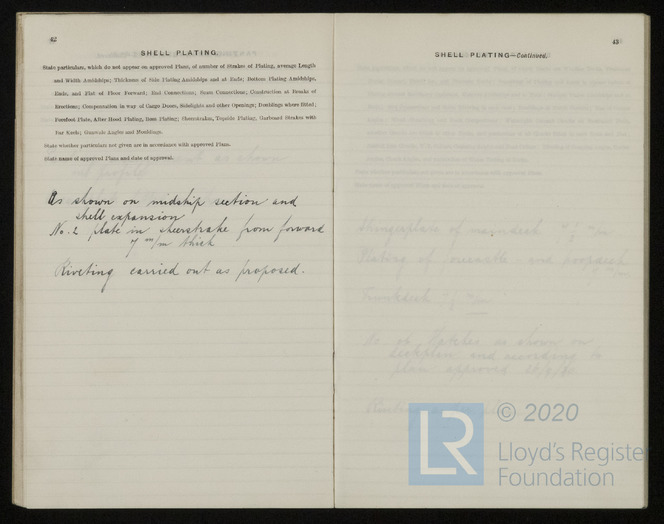 42
SHELL PLATING.
State particulars, which do not appear on approved Plans, of number of Strakes of Plating, average Length
and Width Amidships; Thickness of Side Plating Amidships and at Ends; Bottom Plating Amidships,
Ends, and Flat of Floor Forward; End Connections; Seam Connections; Construction at Breaks of
Erections; Compensation in way of Cargo Doors, Sidelights and other Openings; Doublings where fitted;
Forefoot Plate, After Hood Plating, Boss Plating; Sheerstrakes, Topside Plating, Garboard Strakes with
Bar Keels; Gunwale Angles and Mouldings.
State whether particulars not given are in accordance with approved Plans.
State name of approved Plans and date of approval.
As shown on midship section and
shell expansion
No. 2 plate in sheerstrake from forward
7 m/m thick
Riveting carried out as proposed.
43
SHELL PLATING—Continued.
Stringerplate of maindeck
Plating of forecastle and poopdeck
No of Hatches as shown on
deckplan and according to
plan approved
LR
© 2020
Lloyd's Register
Foundation